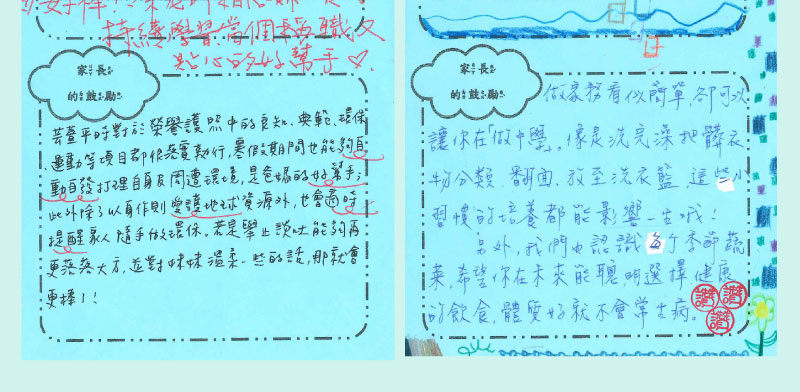 持續學習當個稱職又
貼心的好幫手♡.
家長
的鼓勵
平時對於榮譽護照中的良知、典範、環保
、運動等項目都很落實執行,寒假期間也能夠自
動自發打理自身及周遭環境,是爸媽的好幫手;
此外除了以身作則愛護地球資源外,也會適時
提醒家人隨手做環保。若是舉止談吐能夠再
更落落大方,並對妹妹溫柔一些的話,那就會
更棒!!
家長
的鼓勵
做家務看似簡單,卻可以
讓你在「做中學」,像是洗完澡把髒衣
物分類、翻面、放至洗衣籃,這些小
習慣的培養都能影響一生哦!
另外,我們由認識每个季節蔬
菜,希望你在未來能聰明選擇健康
的飲食,體質好就不會常生病。
讚
讚
讚